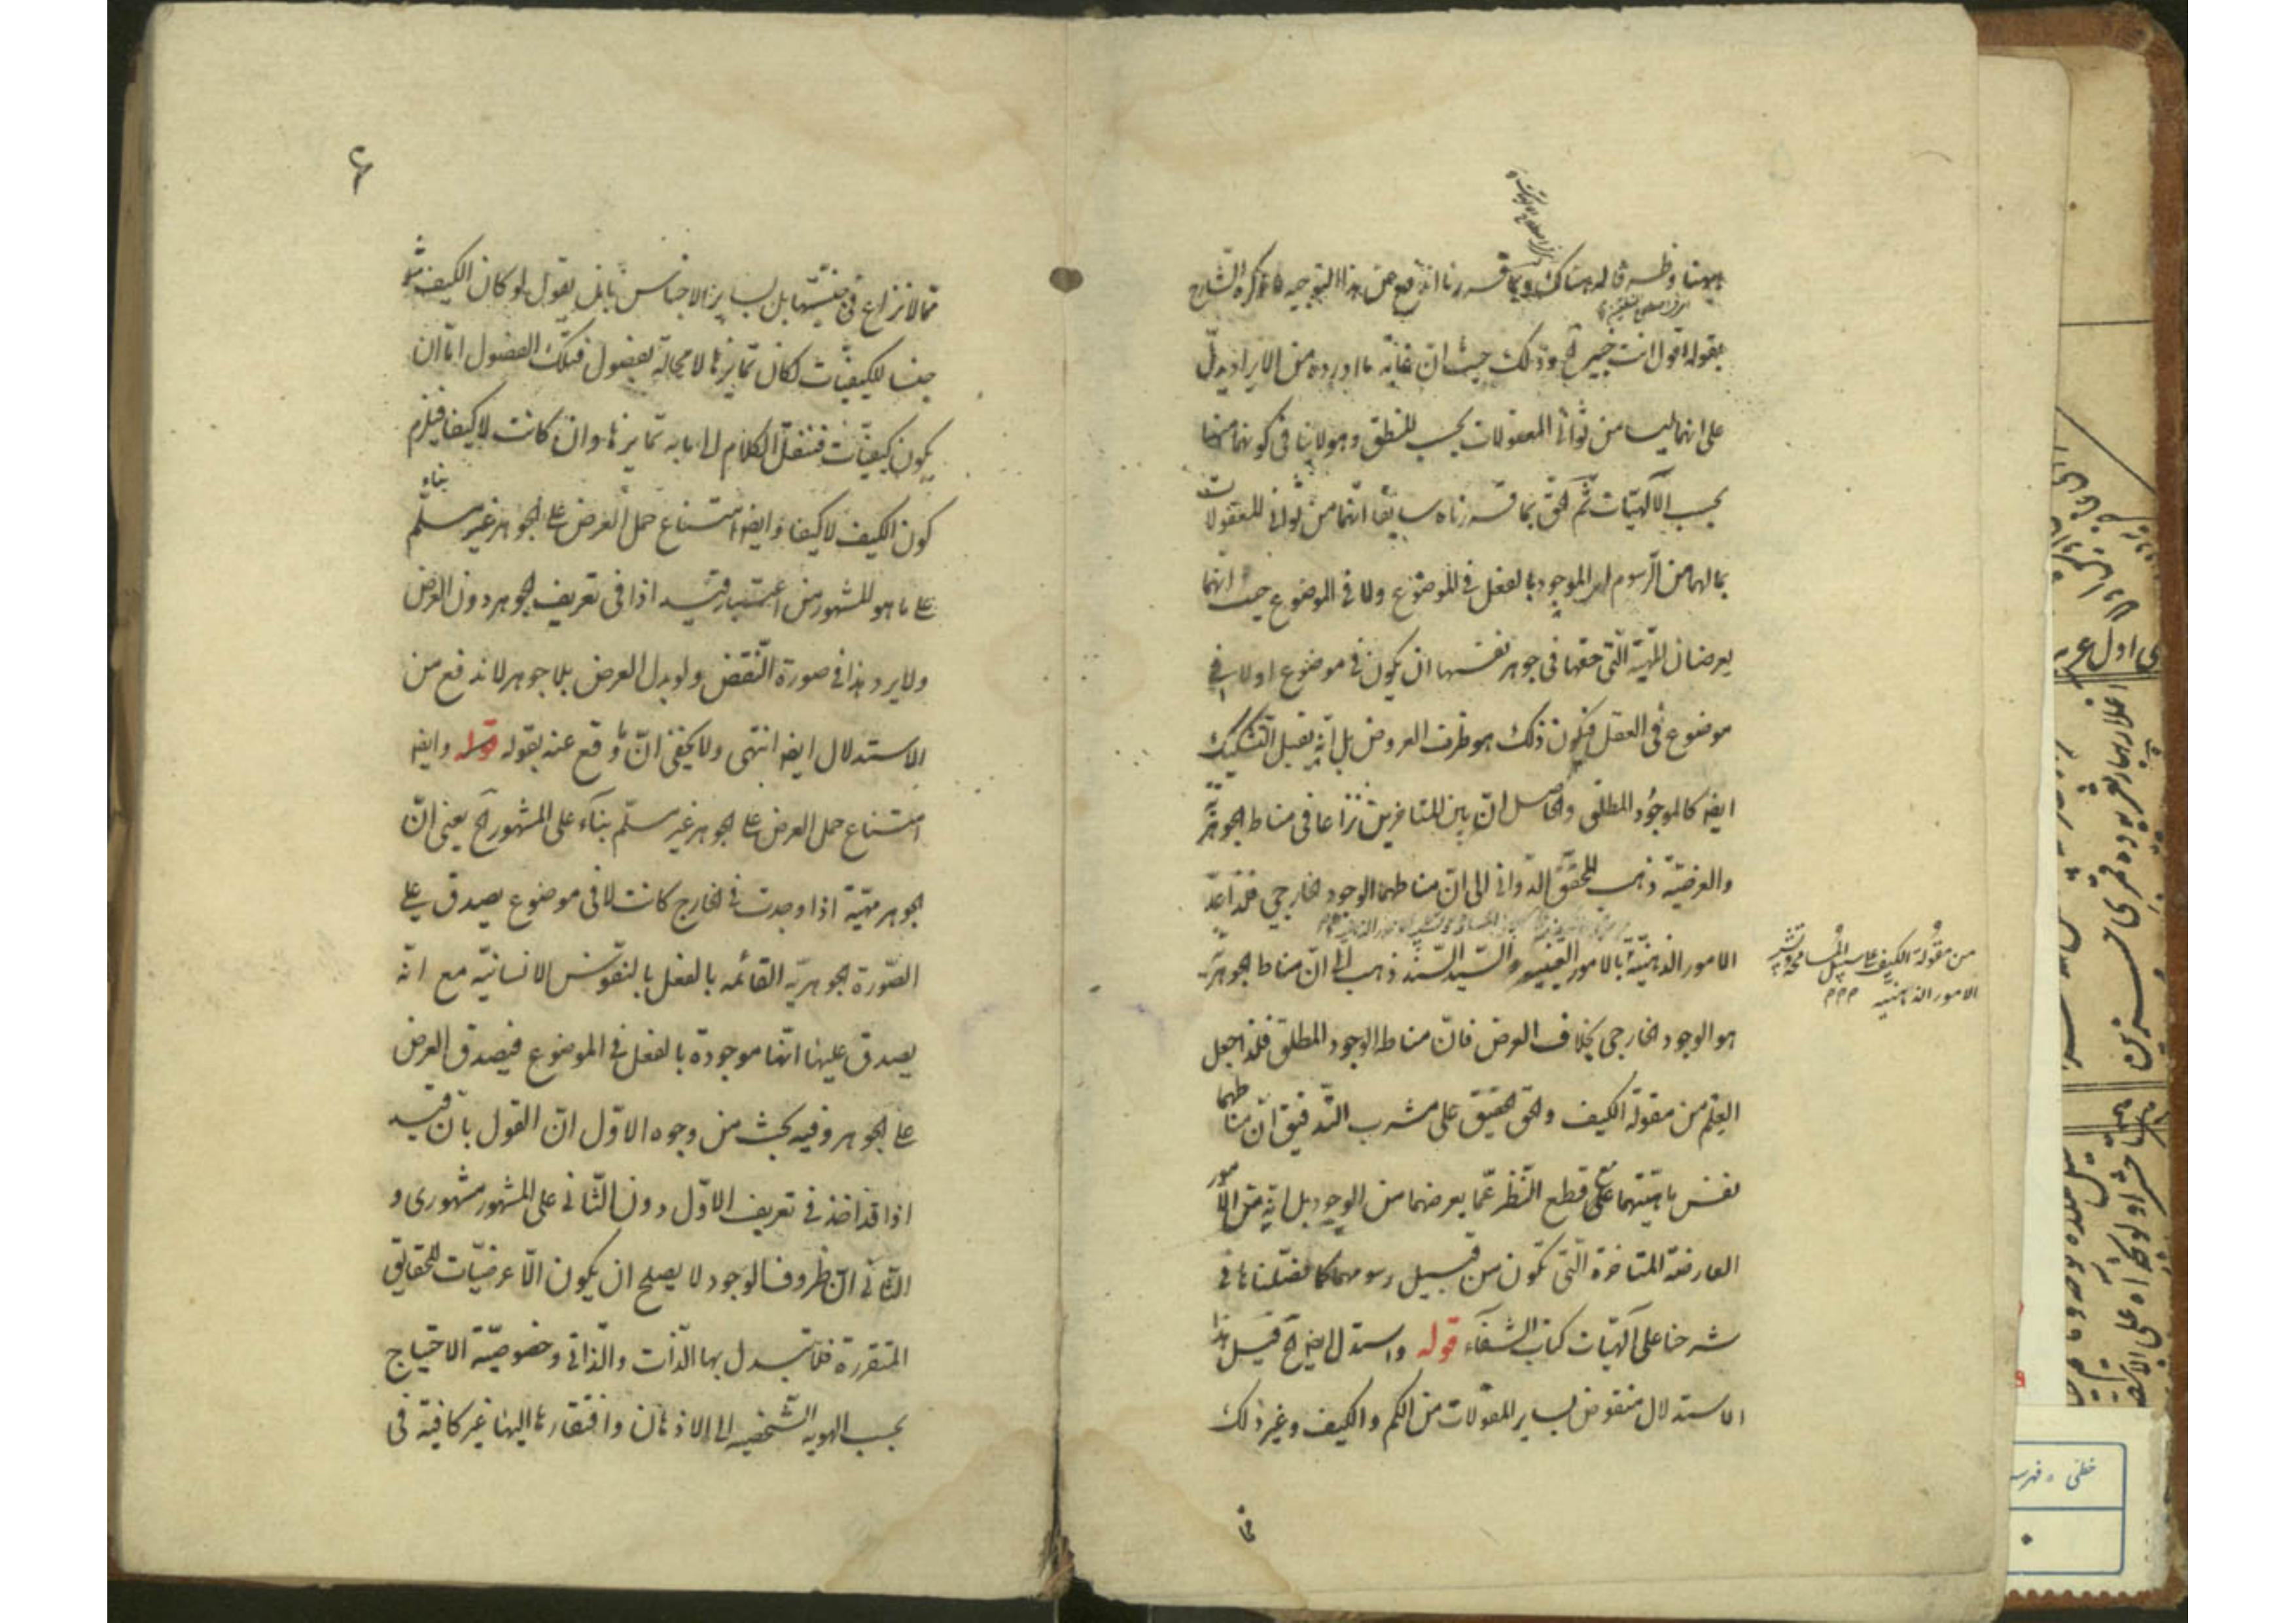 ههنا وظهر قاله هناك وبما قررنا اندفع من هذا التوجيه ما ذكره الشارح
بقوله اقول انت خبير الخ وذلك حيث ان غاية ما اورده من الايراد يدل
على انهما ليسا من ثواني المعقولات بحسب المنطق وهو لا ينافي كونهما منها
بحسب الآلهيات ثم الحق بما قررناه سابقا انهما من ثواني المعقولات
بمالهما من الرسوم اى الموجود بالفعل في الموضوع ولا في الموضوع حيث انهما
يعرضان المهية التي حقها في جوهر نفسها ان يكون في موضوع او لا في
موضوع في العقل فيكون ذلك هو ظرف العروض بل انه يقبل التشكيك
ايضا كالموجود المطلق والحاصل ان بين المتاخرين نزاعا في مناط الجوهرية
والعرضية ذهب المحقق الدواني الى ان مناطهما الوجود الخارجي فلذا عد
من مقولة الكيف على سبيل المسامحة وتشبيه
الامور الذهنية
الامور الذهنية بالامور العينية والسيد السند ذهب الى ان مناط الجوهرية
هو الوجود الخارجي بخلاف العرض فان مناط الوجود المطلق فلذا جعل
العلم من مقولة الكيف والحق الحقيق على مشرب التدقيق ان مناطهما
نفس ماهيتهما مع قطع النظر عما يعرضهما من الوجود بل انه من الامور
العارضة المتاخرة التي تكون من قبيل رسومهما كما فصلناها في
شرحنا على آلهيات كتاب الشفاء قوله واستدل ايضا الخ قيل هذا
الاستدلال منقوض بساير المقولات من الكم والكيف وغير ذلك
مما
۶
مما لا نزاع في جنسيتها بل بساير الاجناس بان يقول لو كان الكيف مثلا
جنسا للكيفيات لكان تمايزها لا محالة بفصول فتلك الفصول اما ان
يكون كيفيات فننقل الكلام الى ما به تمايزها وان كانت لا كيفا فيلزم
كون الكيف لا كيفا وايضا امتناع حمل العرض على الجوهر غير مسلم بناء
على ما هو المشهور من اعتبار قيد اذا في تعريف الجوهر دون العرض
ولا يرد هذا في صورة النقض ولو بدل العرض بلا جوهر لاندفع من
الاستدلال ايضا انتهى ولا يخفى ان ما وقع عنه بقوله قوله وايضا
امتناع حمل العرض على الجوهر غير مسلم بناء على المشهور الخ يعني ان
الجوهر مهية اذا وجدت في الخارج كانت لا في موضوع يصدق على
الصورة الجوهرية القائمه بالفعل بالنفوس الانسانية مع انه
يصدق عليها انها موجودة بالفعل في الموضوع فيصدق العرض
على الجوهر وفيه بحث من وجوه الاول ان القول بان قيد
اذا قد اخذ في تعريف الاول دون الثاني على المشهور مشهورى و
الثاني ان ظروف الوجود لا يصلح ان يكون الا عرضيات للحقايق
المتقررة فلا تتبدل بها الذات والذاتي وخصوصية الاحتياج
بحسب الهويه الشخصيه الى الاذهان وافتقارها اليها غير كافية في